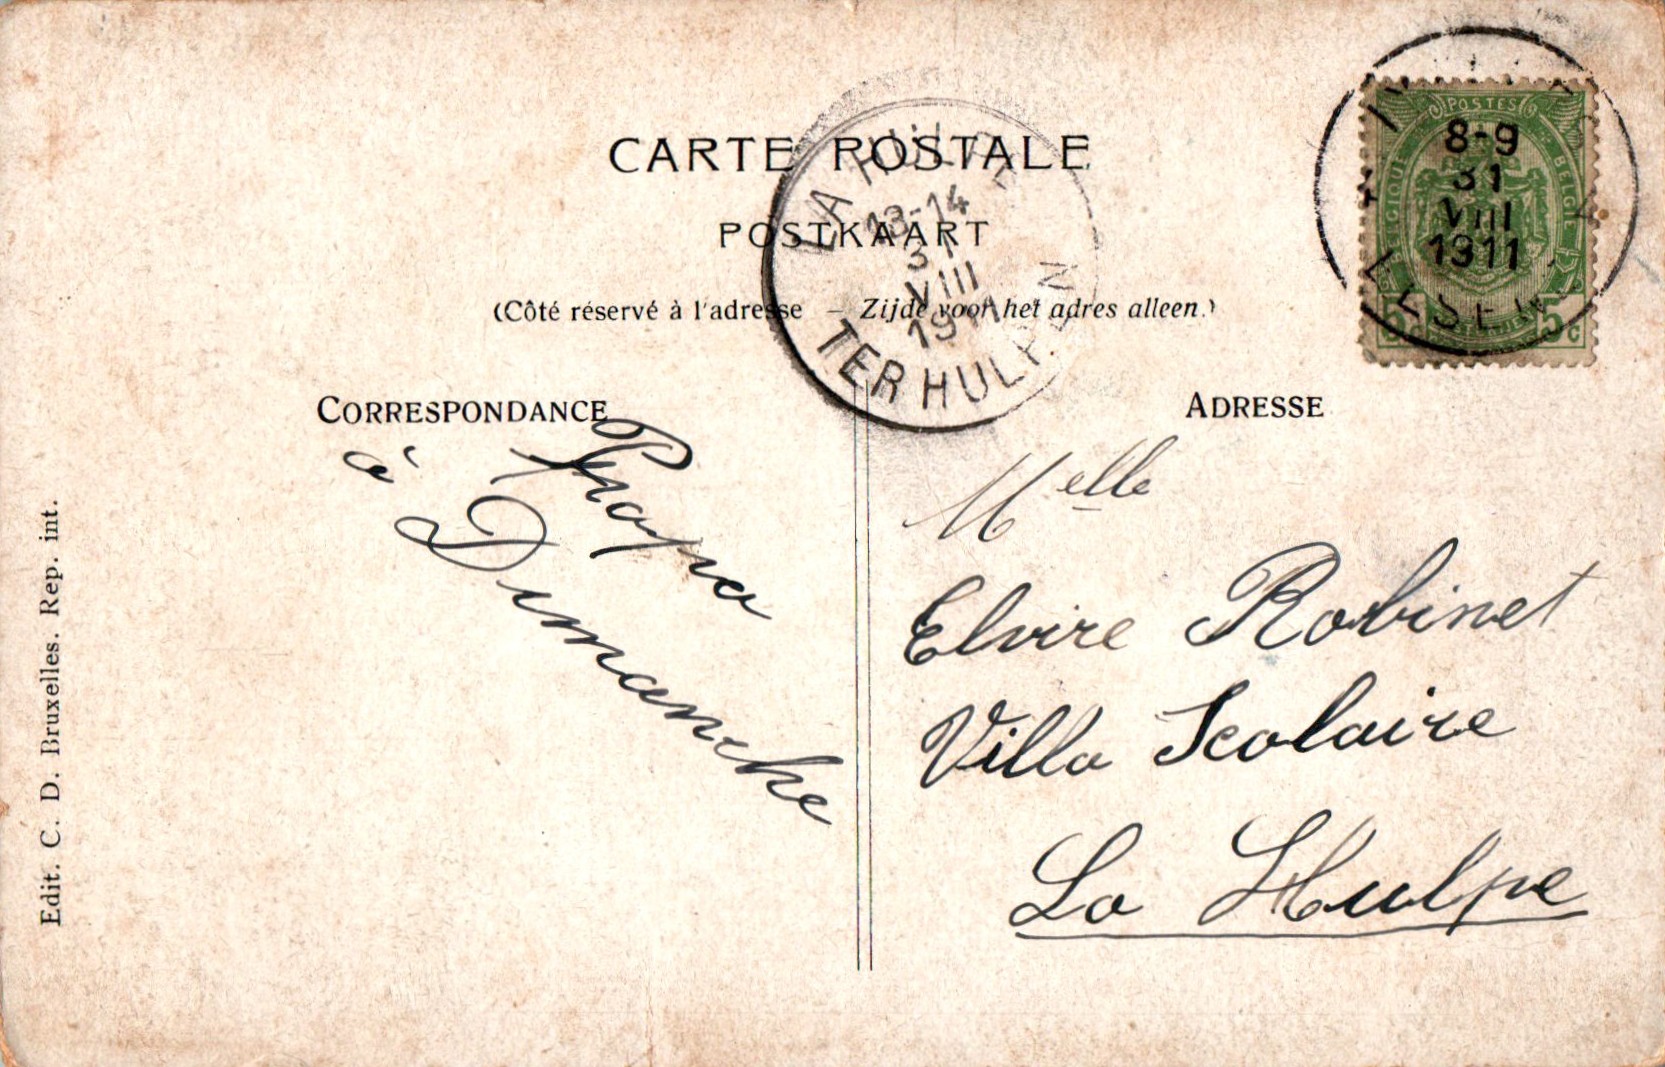 CARTE POSTALE
POSTKAART
(Côté réservé à l'adresse – Zijde voor het adres alleen.)
LA HULPE
13-14
31
VIII
1911
TERHULPEN
POSTES
8-9
31
VIII
1911
5c 5c
CORRESPONDANCE
à Dimanche
Papa
ADRESSE
Melle
Elvire Robinet
Villa Scolaire
La Hulpe
Edit. C. D. Bruxelles. Rep. int.